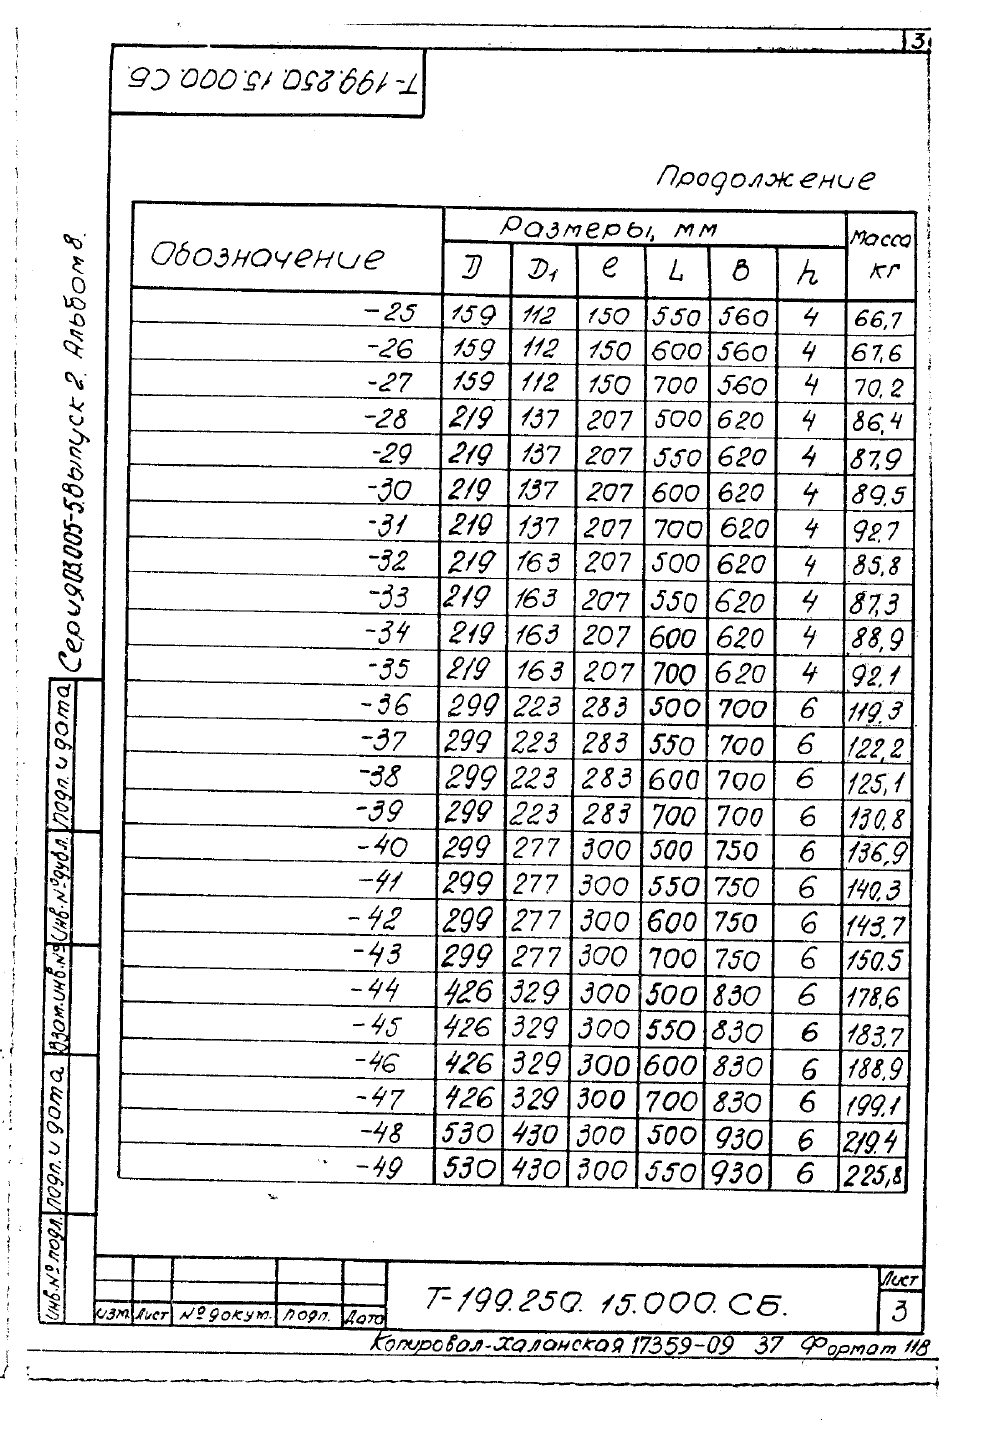 3
Т-199.250.15.000.СБ
Продолжение
Обозначение Размеры, мм Масса кг
D D1 ℓ L B h
-25 159 112 150 550 560 4 66,7
-26 159 112 150 600 560 4 67,6
-27 159 112 150 700 560 4 70,2
-28 219 137 207 500 620 4 86,4
-29 219 137 207 550 620 4 87,9
-30 219 137 207 600 620 4 89,5
-31 219 137 207 700 620 4 92.7
-32 219 163 207 500 620 4 85,8
-33 219 163 207 550 620 4 87,3
-34 219 163 207 600 620 4 88,9
-35 219 163 207 700 620 4 92.1
-36 299 223 283 500 700 6 119,3
-37 299 223 283 550 700 6 122,2
-38 299 223 283 600 700 6 125,1
-39 299 223 283 700 700 6 130,8
-40 299 277 300 500 750 6 136,9
-41 299 277 300 550 750 6 140,3
-42 299 277 300 600 750 6 143,7
-43 299 277 300 700 750 6 150.5
-44 426 329 300 500 830 6 178,6
-45 426 329 300 550 830 6 183,7
-46 426 329 300 600 830 6 188,9
-47 426 329 300 700 830 6 199.1
-48 530 430 300 500 930 6 219.4
-49 530 430 300 550 930 6 225,8
Серия 3.005-5 Выпуск 2. Альбом 8.
Подп. и дата
Инв. № дубл.
Взам. инв. №
Подп. и дата
Инв. № подл.
Изм. Лист № докум. Подп. Дата
Т-199.250.15.000.СБ.
Лист
3
Копировал-Халанская 17359-09 37 Формат 11В